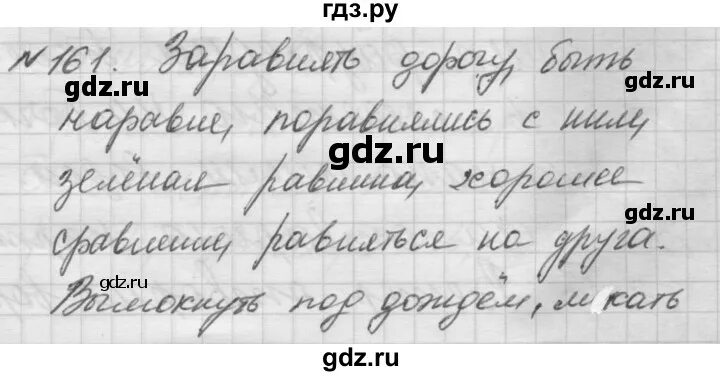 гдз.ру
№161. Заравнять дорогу, быть
gdz.ru gdz.ru
наравне, поравнялись с ним,
gdz.ru
зелёная равнина, хорошее
gdz.ru
сравнение, равняться на друга.
gdz.ru
Вымокнуть под дождём, макать
gdz.ru
gdz.ru